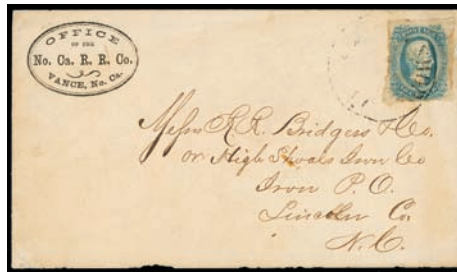 OFFICE
OF THE
No. Ca. R. R. Co.
VANCE, No. Ca.
Messrs R.R. Bridgers & Co.
or High Shoals Iron Co
Iron P.O.
Lincoln Co.
N.C.